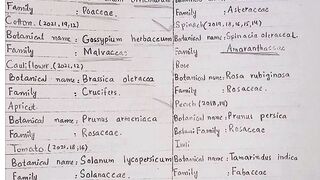 Family : Poaceae
Cotton. (2021,19,12)
Botanical name : Gossypium herbaceum
Family : Malvaceae
Cauliflower. (2021,12)
Botanical name : Brassica oleracea
Family : Crucifers.
Apricot
Botanical name : Prunus armeniaca
Family : Rosaceae.
Tomato. (2021,18,16)
Botanical name : Solanum lycopersicum
Family : Solanaceae
Family : Asteraceae
Spinach (2019,18,16,15,14)
Botanical name : Spinacia oleracea L
Family : Amaranthaceae
Rose
Botanical name : Rosa rubiginosa
Family : Rosaceae.
Peach (2018,14)
Botanical name : Prunus persica
Botani Family : Rosaceae
Imli
Botanical name : Tamarindus indica
Family : Fabaceae